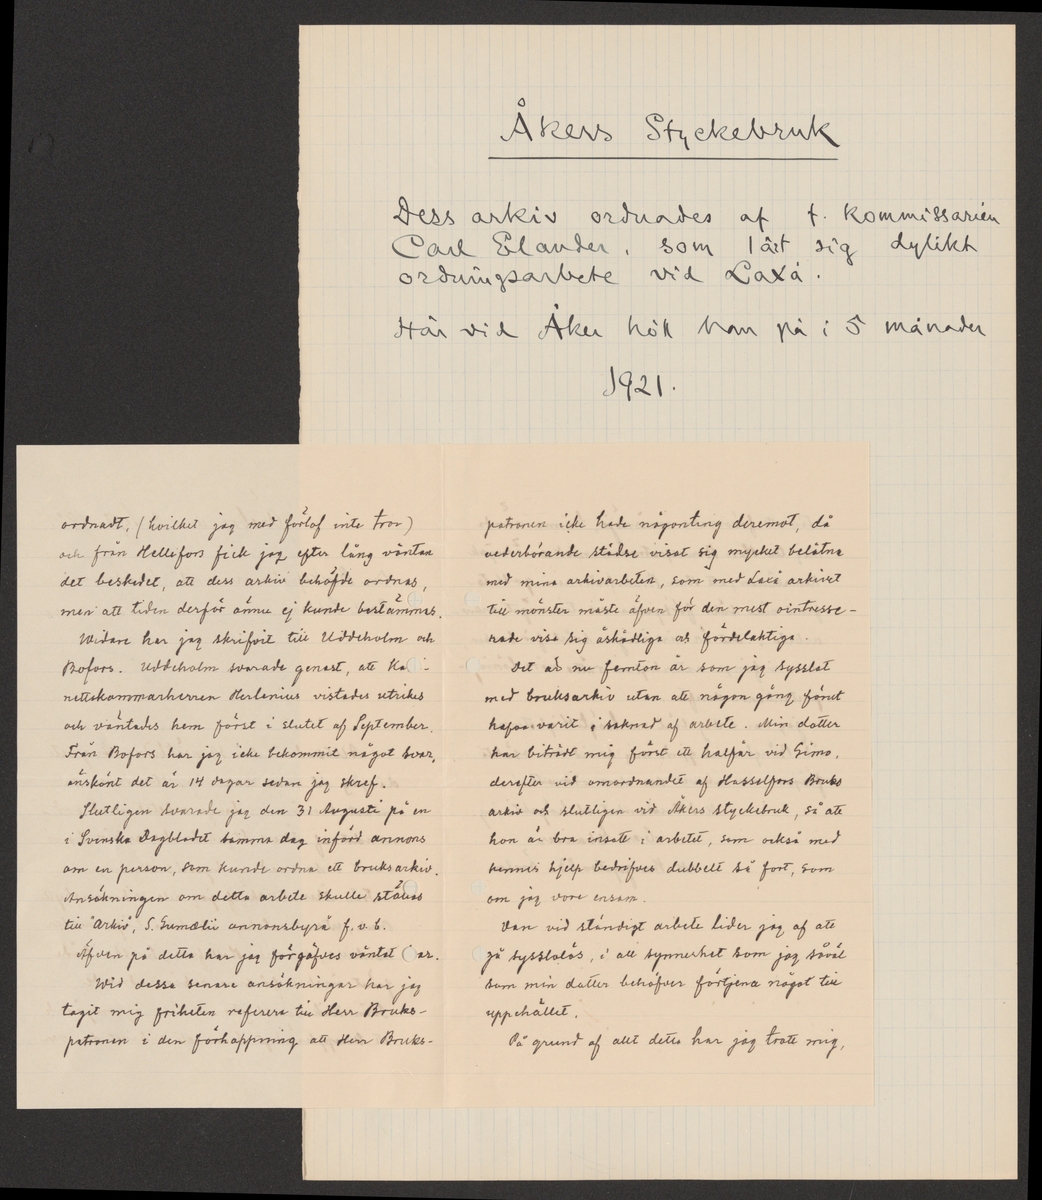 Åkers Styckebruk
Dess arkiv ordnades af f. kommissarien
Carl Elander, som låt sig dylikt
ordningsarbete vid Laxå.
Här vid Åker höll han på i 5 månader
1921.
ordnadt, (hvilket jag med förlof inte tror)
och från Hellefors fick jag efter lång väntan
det beskedet, att dess arkiv behöfde ordnas,
men att tiden derför ännu ej kunde bestämmas.
Widare har jag skrifvit till Uddeholm och
Bofors. Uddeholm svarade genast, att Ka
nettskammarherren Herlenius vistades utrikes
och väntades hem först i slutet af September.
Från Bofors har jag icke bekommit något svar,
änskönt det är 14 dagar sedan jag skref.
Slutligen svarade jag den 31 Augusti på en
i Svenska Dagbladet samma dag införd annons
om en person, som kunde ordna ett bruksarkiv.
Ansökningen om detta arbete skulle ställas
till "Arkiv", S. Gumælii annonsbyrå f. v. b.
Äfven på detta har jag förgäfves väntat ar.
Wid dessa senare ansökningar har jag
tagit mig friheten referera till Herr Bruks-
patronen i den förhappning att Herr Bruks-
patronen icke hade någonting deremot, då
vederbörande städse visat sig mycket belåtna
med mina arkivarbeten, som med Laxå arkivet
till mönster måste äfven för den mest ointresse-
rade visa sig åskådliga och fördelaktiga.
Det är nu femton år som jag sysslat
med bruksarkiv utan att någon gång förut
hafva varit i saknad af arbete. Min dotter
har biträdt mig först ett halfår vid Gimo,
derefter vid omordnandet af Hasselfors Bruks
arkiv och slutligen vid Åkers styckebruk, så att
hon är bra insatt i arbetet, som också med
hennes hjelp bedrifves dubbelt så fort, som
om jag vore ensam.
Van vid ständigt arbete lider jag af att
gå sysslolös, i all synnerhet som jag såväl
som min dotter behöfver förtjena något till
uppehället.
På grund af allt detta har jag trott mig,